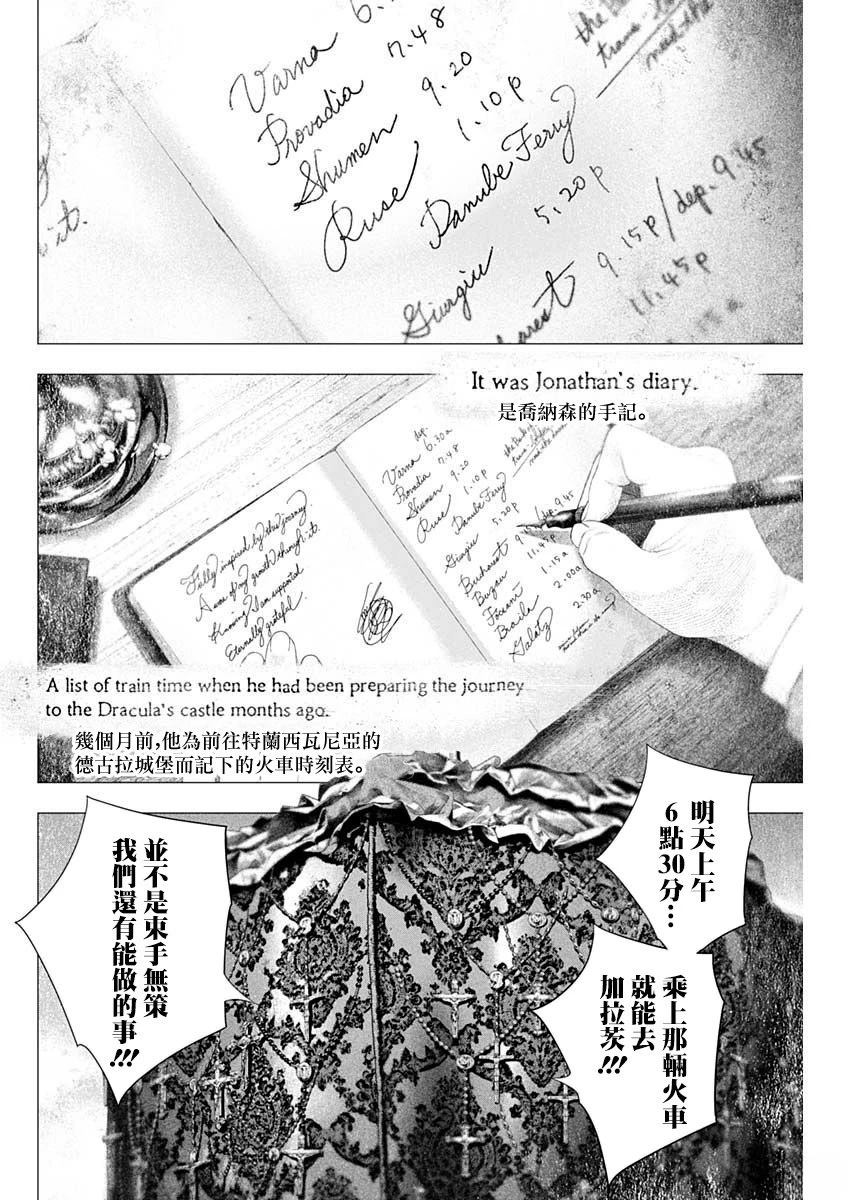 Varna 6.
Provadia 7.48
Shumen 9.20
Ruse 1.10p
Danube Ferry
Giurgiu 5.20p
9.15p/dep. 9.45
11.45p
it.
It was Jonathan's diary.
是喬納森的手記。
dep.
Varna 6.30a
Provadia 7.48
Shumen 9.20
Ruse 1.10p
Danube Ferry
Giurgiu 5.20p
Bucharest 9. /dep. 9.45
Buzau 11.45p
Focsani 1.15a
Braila 2.00a
Galatz 2.30a
Fully inspired by this journey
A sense of my growth through it.
Knowing I am supported
Eternally grateful
A list of train time when he had been preparing the journey
to the Dracula's castle months ago.
幾個月前,他為前往特蘭西瓦尼亞的
德古拉城堡而記下的火車時刻表。
明天上午
6點30分…
乘上那輛火車
就能去
加拉茨!!!
並不是束手無策
我們還有能做的事!!!